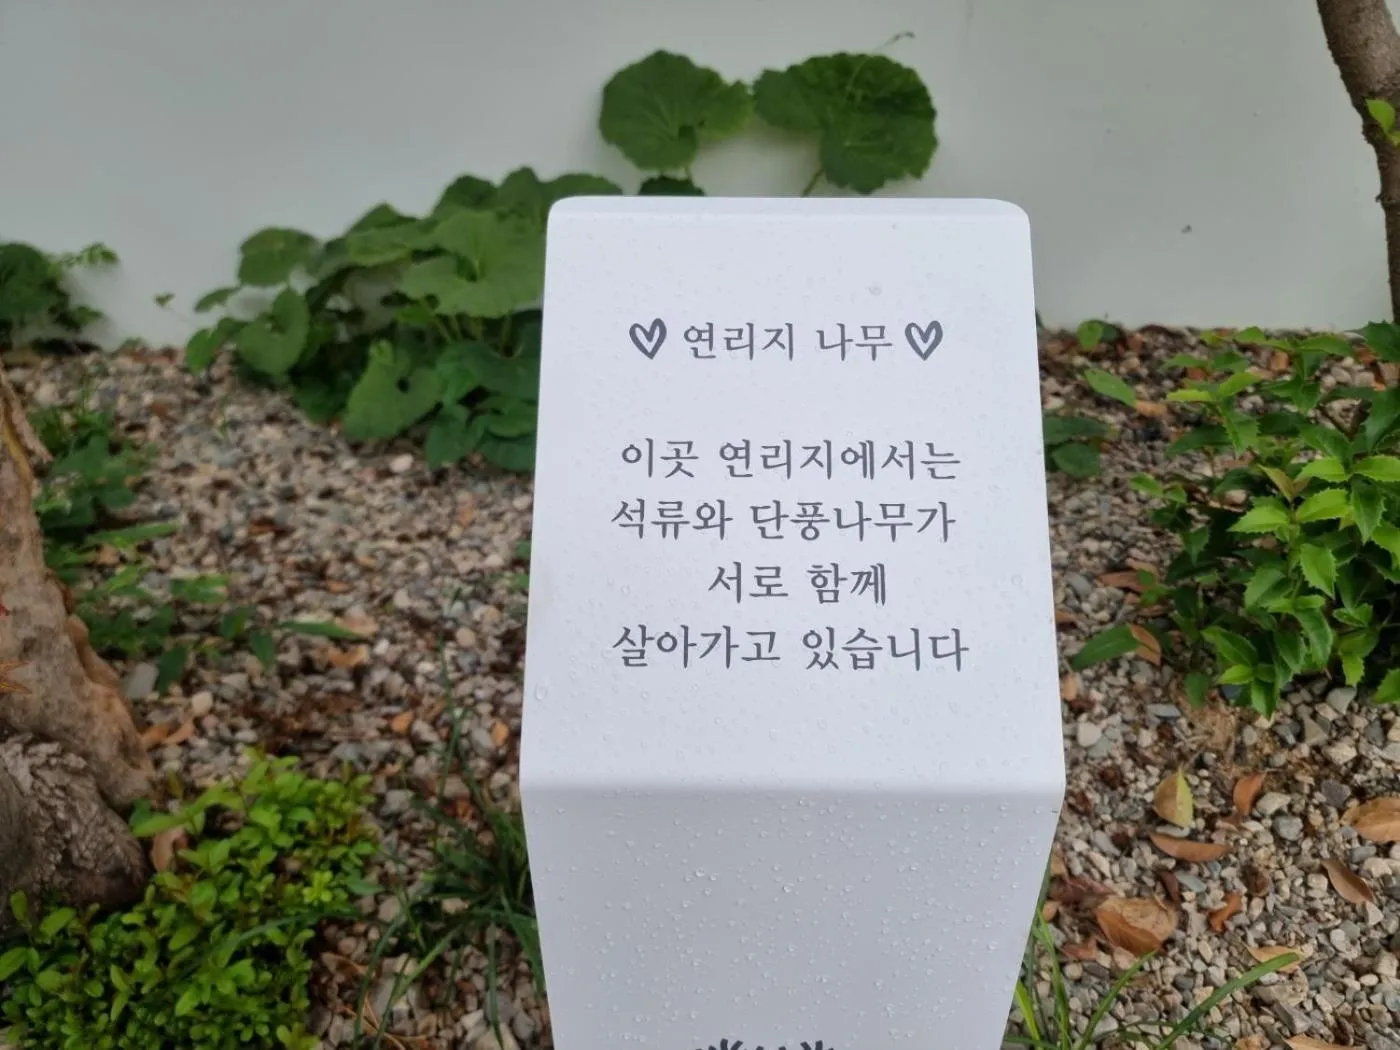 ♡ 연리지 나무 ♡
이곳 연리지에서는
석류와 단풍나무가
서로 함께
살아가고 있습니다